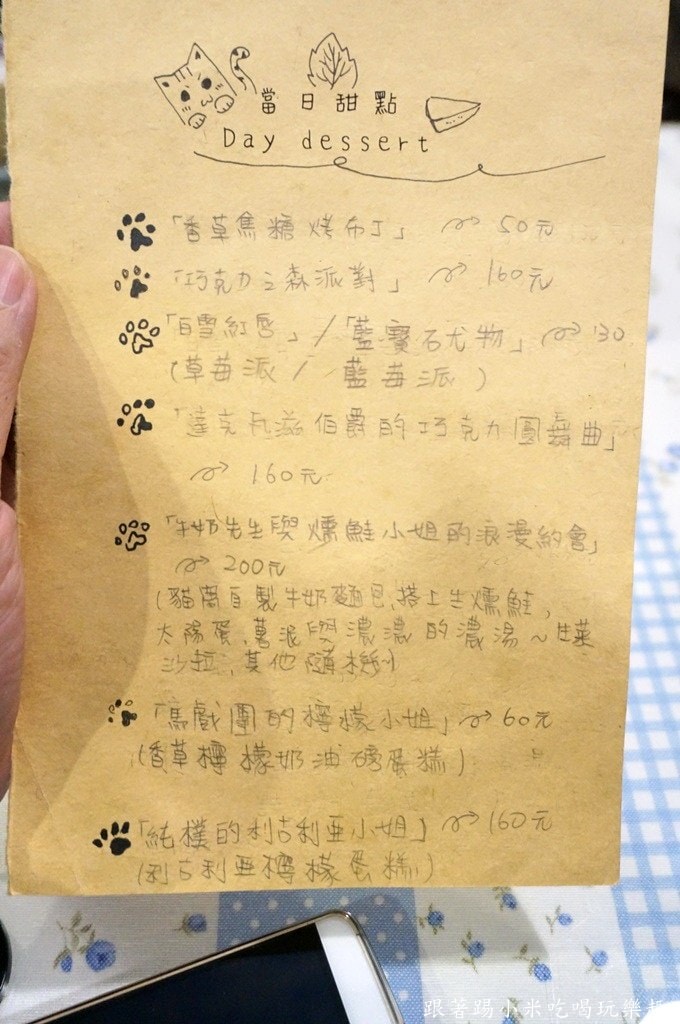 當日甜點
Day dessert
「香草焦糖烤布丁」 50元
「巧克力之森派對」 160元
「白雪紅唇」/「藍寶石尤物」 130
(草莓派 / 藍莓派)
「達克瓦滋伯爵的巧克力圓舞曲」
160元
「牛奶先生與燻鮭小姐的浪漫約會」
200元
(貓窩自製牛奶麵包、搭上生燻鮭,
太陽蛋、薯泥與濃濃的濃湯~生菜
沙拉、其他隨機)
「馬戲團的檸檬小姐」 60元
(香草檸檬奶油磅蛋糕)
「純樸的利古利亞小姐」 160元
(利古利亞檸檬蛋糕)
跟著踢小米吃喝玩樂趣